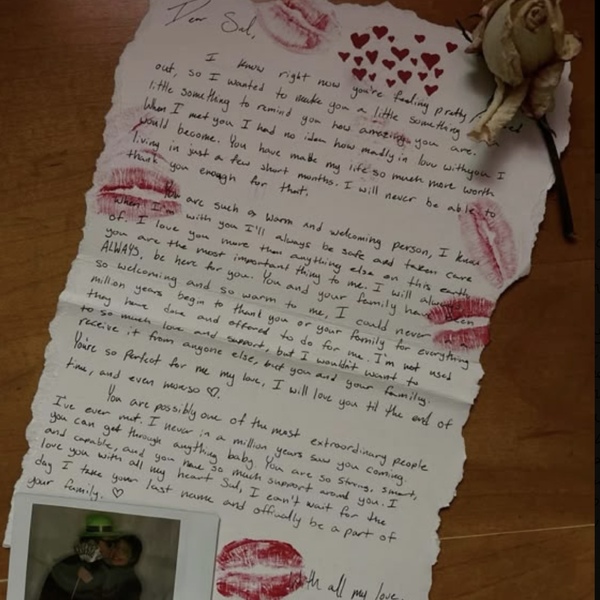 Dear Sal,
I know right now you're feeling pretty
out, so I wanted to make you a little something
little something to remind you how amazing you are.
When I met you I had no idea how madly in love with you I
would become. You have made my life so much more worth
living in just a few short months. I will never be able to
thank you enough for that.
You are such a warm and welcoming person, I know
when I'm with you I'll always be safe and taken care
of. I love you more than anything else on this earth,
you are the most important thing to me. I will always
ALWAYS, be here for you. You and your family have been
so welcoming and so warm to me, I could never in
million years begin to thank you or your family for everything
they have done and offered to do for me. I'm not used
to so much love and support, but I wouldn't want to
receive it from anyone else, but you and your family.
You're so perfect for me my love, I will love you til the end of
time, and even moreso ♡.
You are possibly one of the most extraordinary people
I've ever met. I never in a million years saw you coming.
you can get through anything baby. You are so strong, smart,
and capable, and you have so much support around you. I
love you with all my heart Sal, I can't wait for the
day I take your last name and officially be a part of
your family. ♡
With all my love,